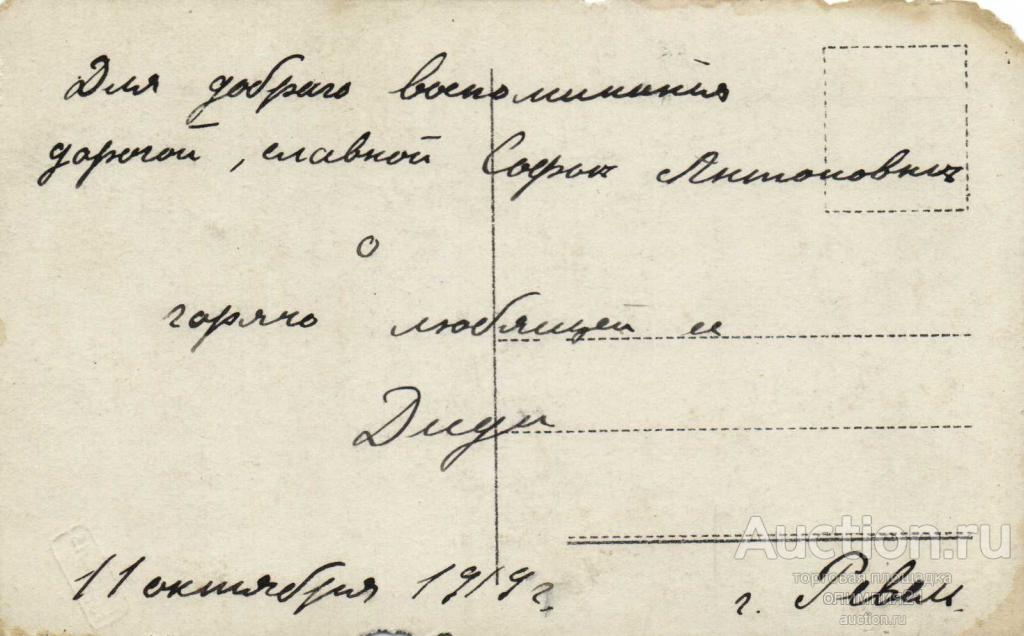 Для добраго воспоминанья
дорогой, славной Софьи Антоновны
о
горячо любящей ее
Диди
11 октября 1919 г.
г. Ревель.
Auction.ru
торговая площадка
ОЛИМПИЕЦ
auction.ru